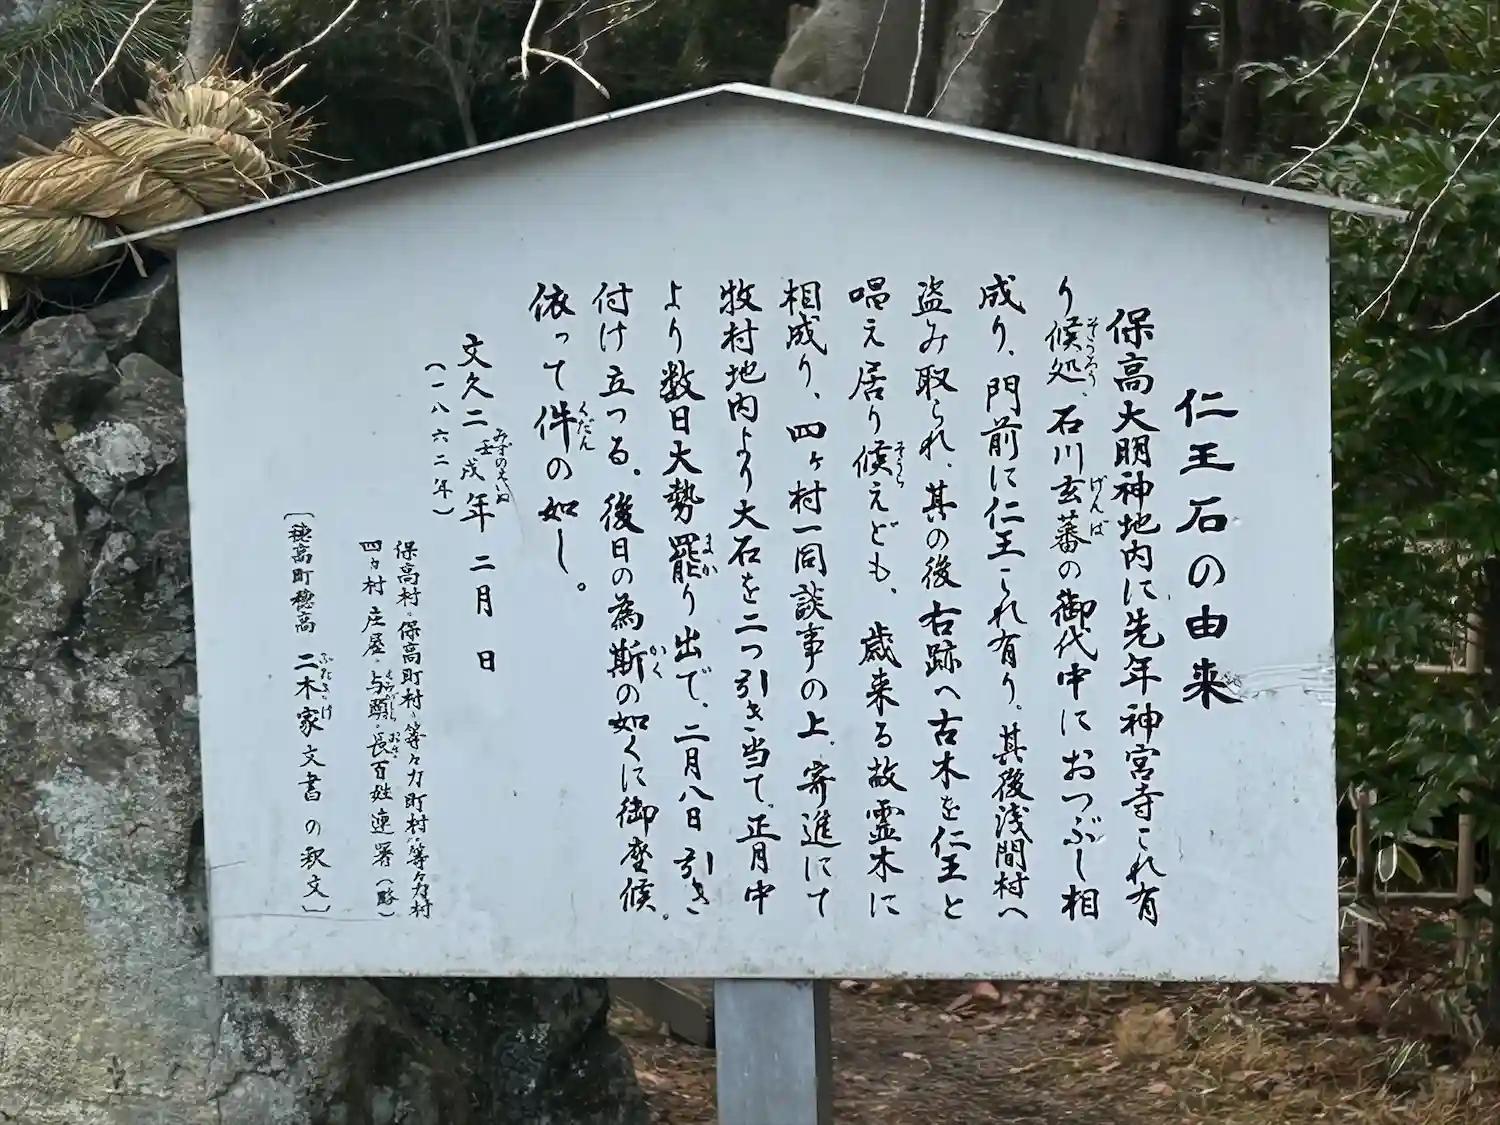 仁王石の由来
保高大明神地内に先年神宮寺これ有
り候処、石川玄蕃の御代中におつぶし相
成り、門前に仁王これ有り。其後浅間村へ
盗み取られ、其の後右跡へ古木を仁王と
唱え居り候えども、歳来る故霊木に
相成り、四ヶ村一同談事の上、寄進にて
牧村地内より大石を二つ引き当て、正月中
より数日大勢罷り出で、二月八日引き
付け立つる。後日の為斯の如くに御座候。
依って件の如し。
文久二壬戌年 二月 日
(一八六二年)
保高村・保高町村・等々力町村・等々力村
四ヶ村 庄屋・与頭・長百姓連署(略)
〔穂高町穂高 二木家文書の釈文〕